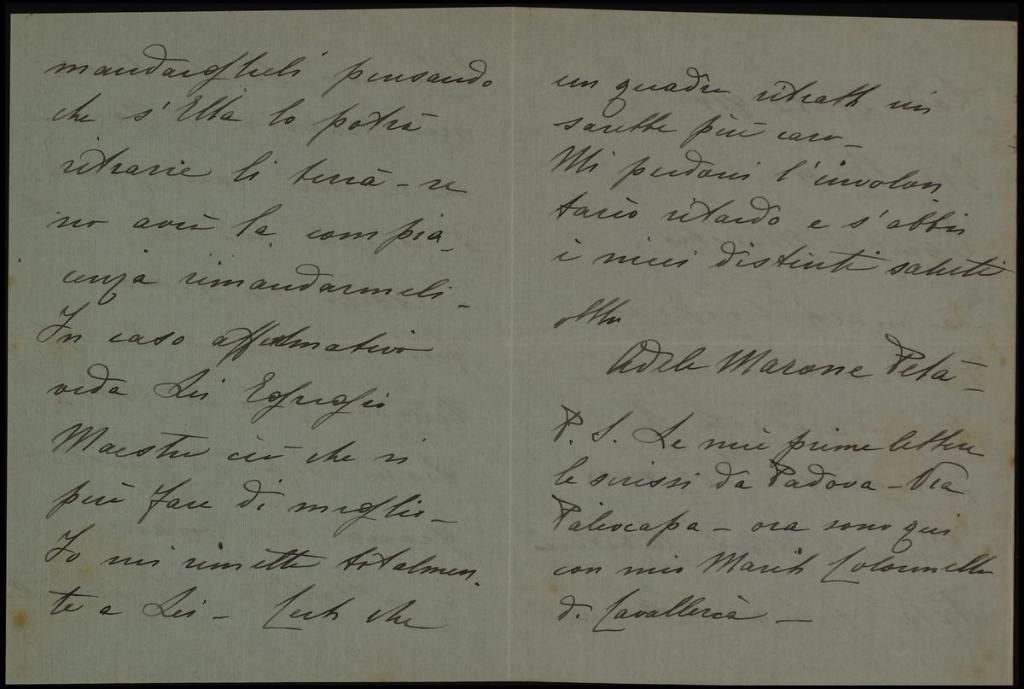 mandarglieli pensando
che s'Ella lo potrà
ritrarre li terrà - se
no avrà la compia_
cenza rimandarmeli -
In caso affermativo
veda Lei Egregio
Maestro ciò che si
può fare di meglio -
Io mi rimetto totalmen.
te a Lei - Certo che
un quadro ritratto mi
sarebbe più caro -
Mi perdoni l'involon
tario ritardo e s'abbia
i miei distinti saluti
Adele Marone Petà -
P. S. Le mie prime lettere
le scrissi da Padova - Via
Paleocapa - ora sono qui
con mio Marito Colonnello
di Cavalleria -